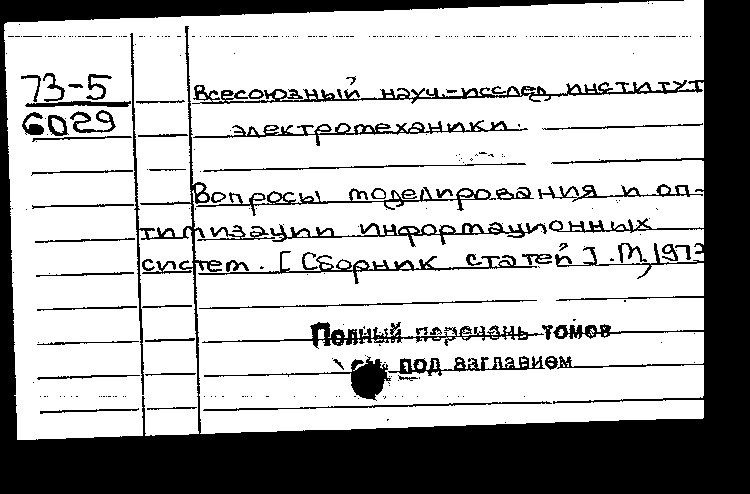 73-5
6029
Всесоюзный науч.-исслед. институт
электромеханики.
Вопросы моделирования и оп-
тимизации информационных
систем. [Сборник статей]. М., 1973
Полный перечень томов
см. под заглавием